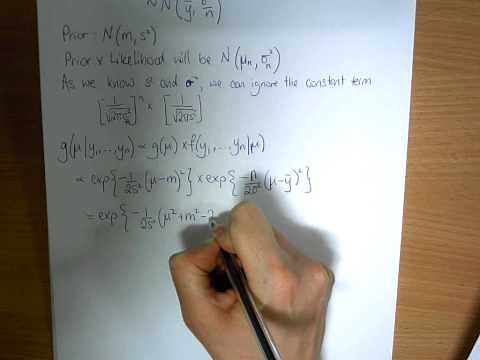 ~ N(ȳ, σ²/n)
Prior: N(m, s²)
Prior x Likelihood will be N(μₙ, σₙ²)
As we know s² and σ², we can ignore the constant term
[1/√2πs²]ⁿ x [1/√2πs²]
g(μ|y₁,...yₙ) ∝ g(μ) x f(y₁,...yₙ|μ)
∝ exp{-1/2s² (μ-m)²} x exp{-n/2σ² (μ-ȳ)²}
= exp{-1/2s² (μ²+m²-2